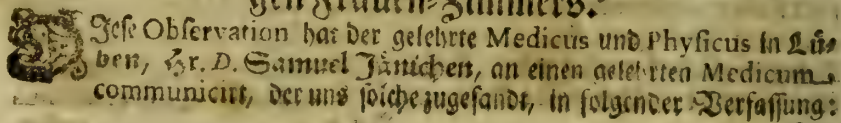 gen Frauen-Zimmers.
DJese Observation hat der gelehrte Medicus und Physicus in Lü-
ben, Hr. D. Samuel Jänichen, an einen gelehrten Medicum
communicirt, der uns solche zugesandt, in folgender Verfassung: